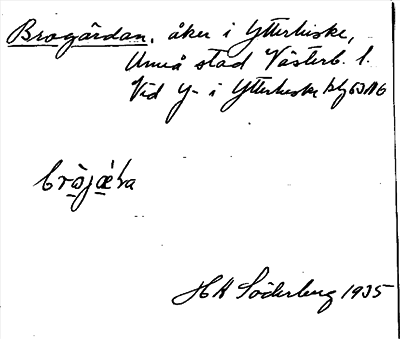 Brogärdan, åker i Ytterhiske,
Umeå stad Västerb. l.
Vid y- i Ytterhiske
H A Söderberg 1935